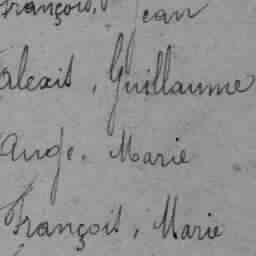 François, Jean
alexis, Guillaume
Ange, Marie
François, Marie